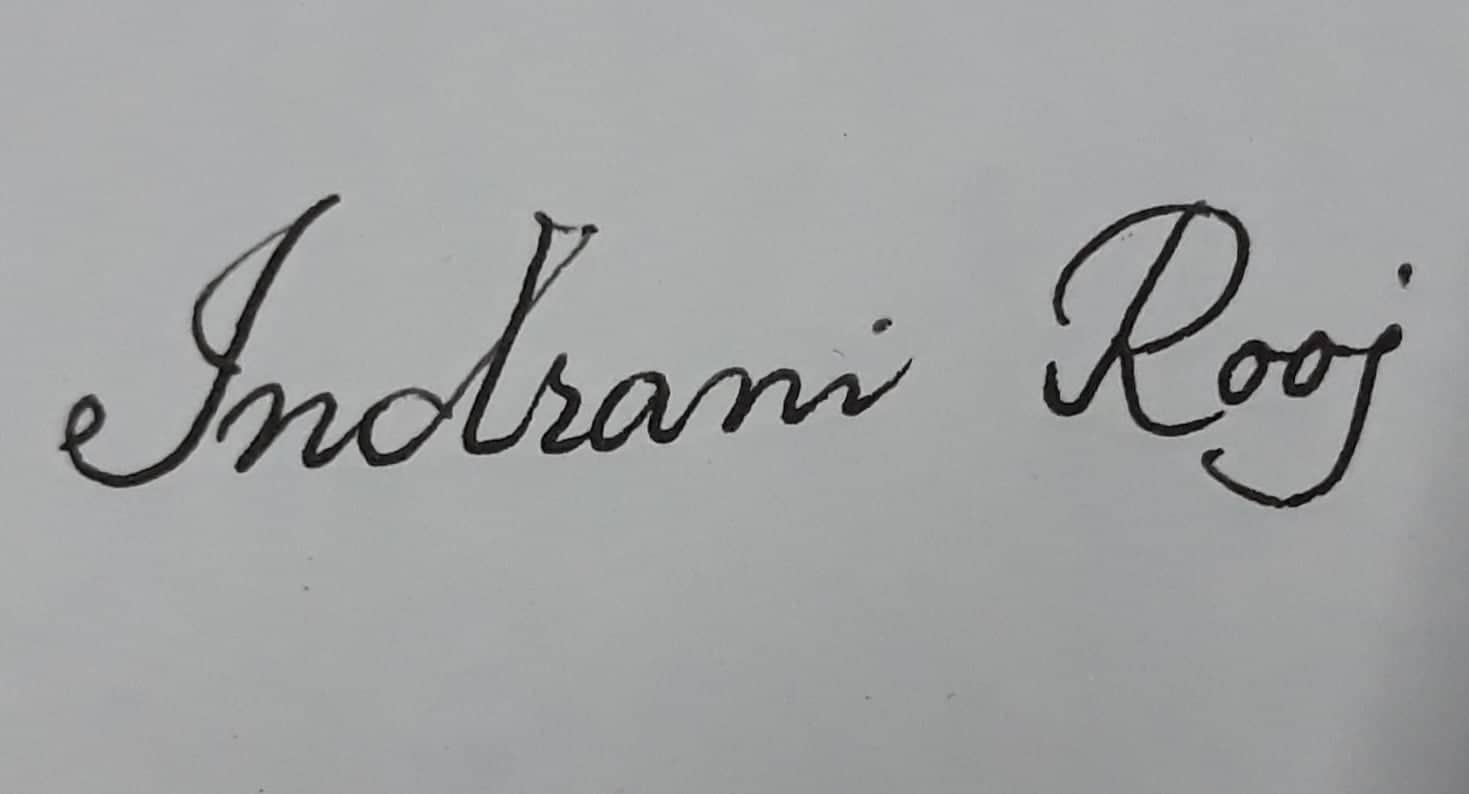 Indrani Rooj